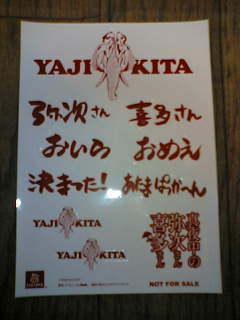 YAJI KITA
弥次さん 喜多さん
おいら おめえ
決まった! あたまぱっかーん
YAJI KITA
YAJI KITA
真夜中の
弥次さん
喜多さん
NOT FOR SALE